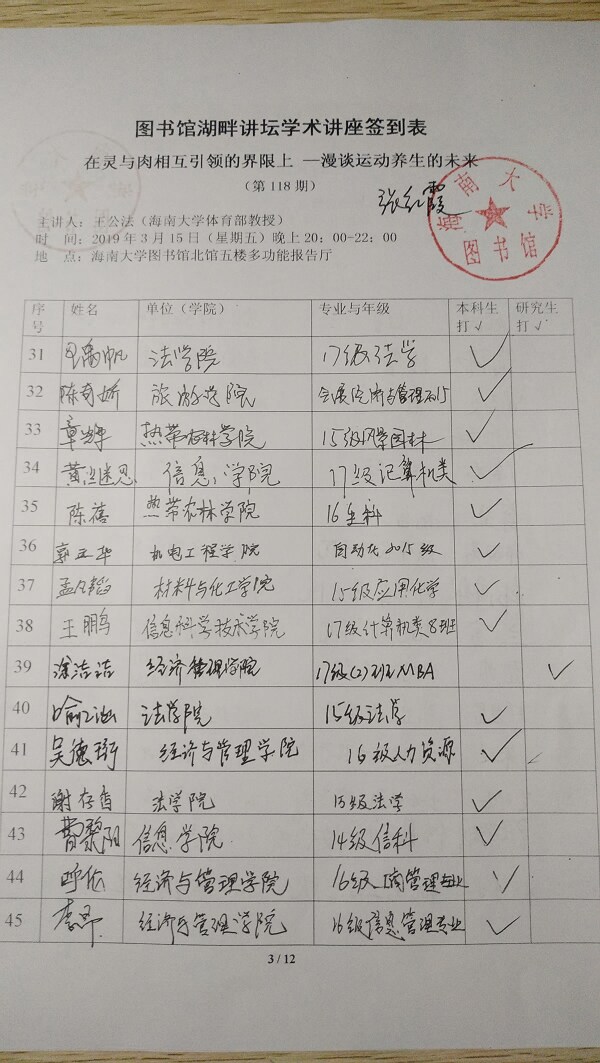 图书馆湖畔讲坛学术讲座签到表
在灵与肉相互引领的界限上 —漫谈运动养生的未来
（第 118 期）
张红霞
海南大学
图书馆
主讲人：王公法（海南大学体育部教授）
时 间：2019 年 3 月 15 日（星期五）晚上 20：00-22：00
地 点：海南大学图书馆北馆五楼多功能报告厅
序号 姓名 单位（学院） 专业与年级 本科生打√ 研究生打√
31 法学院 17级法学 √
32 陈奇娇 旅游学院 √
33 章辉 热带农林学院 15级风景园林 √
34 黄继恩 信息学院 17级记算机类 √
35 陈蓓 热带农林学院 16生科 √
36 郭正华 机电工程学院 自动化2015级 √
37 孟凡韬 材料与化工学院 15级应用化学 √
38 王鹏 信息科学技术学院 17级计算机类8班 √
39 涂洁洁 经济管理学院 17级(2)班MBA √
40 法学院 15级法学 √
41 吴德珩 经济与管理学院 16级人力资源 √
42 谢存香 法学院 15级法学 √
43 曹黎阳 信息学院 14级信科 √
44 呼依 经济与管理学院 16级工商管理专业 √
45 李昂 经济与管理学院 16级信息管理专业 √
3 / 12